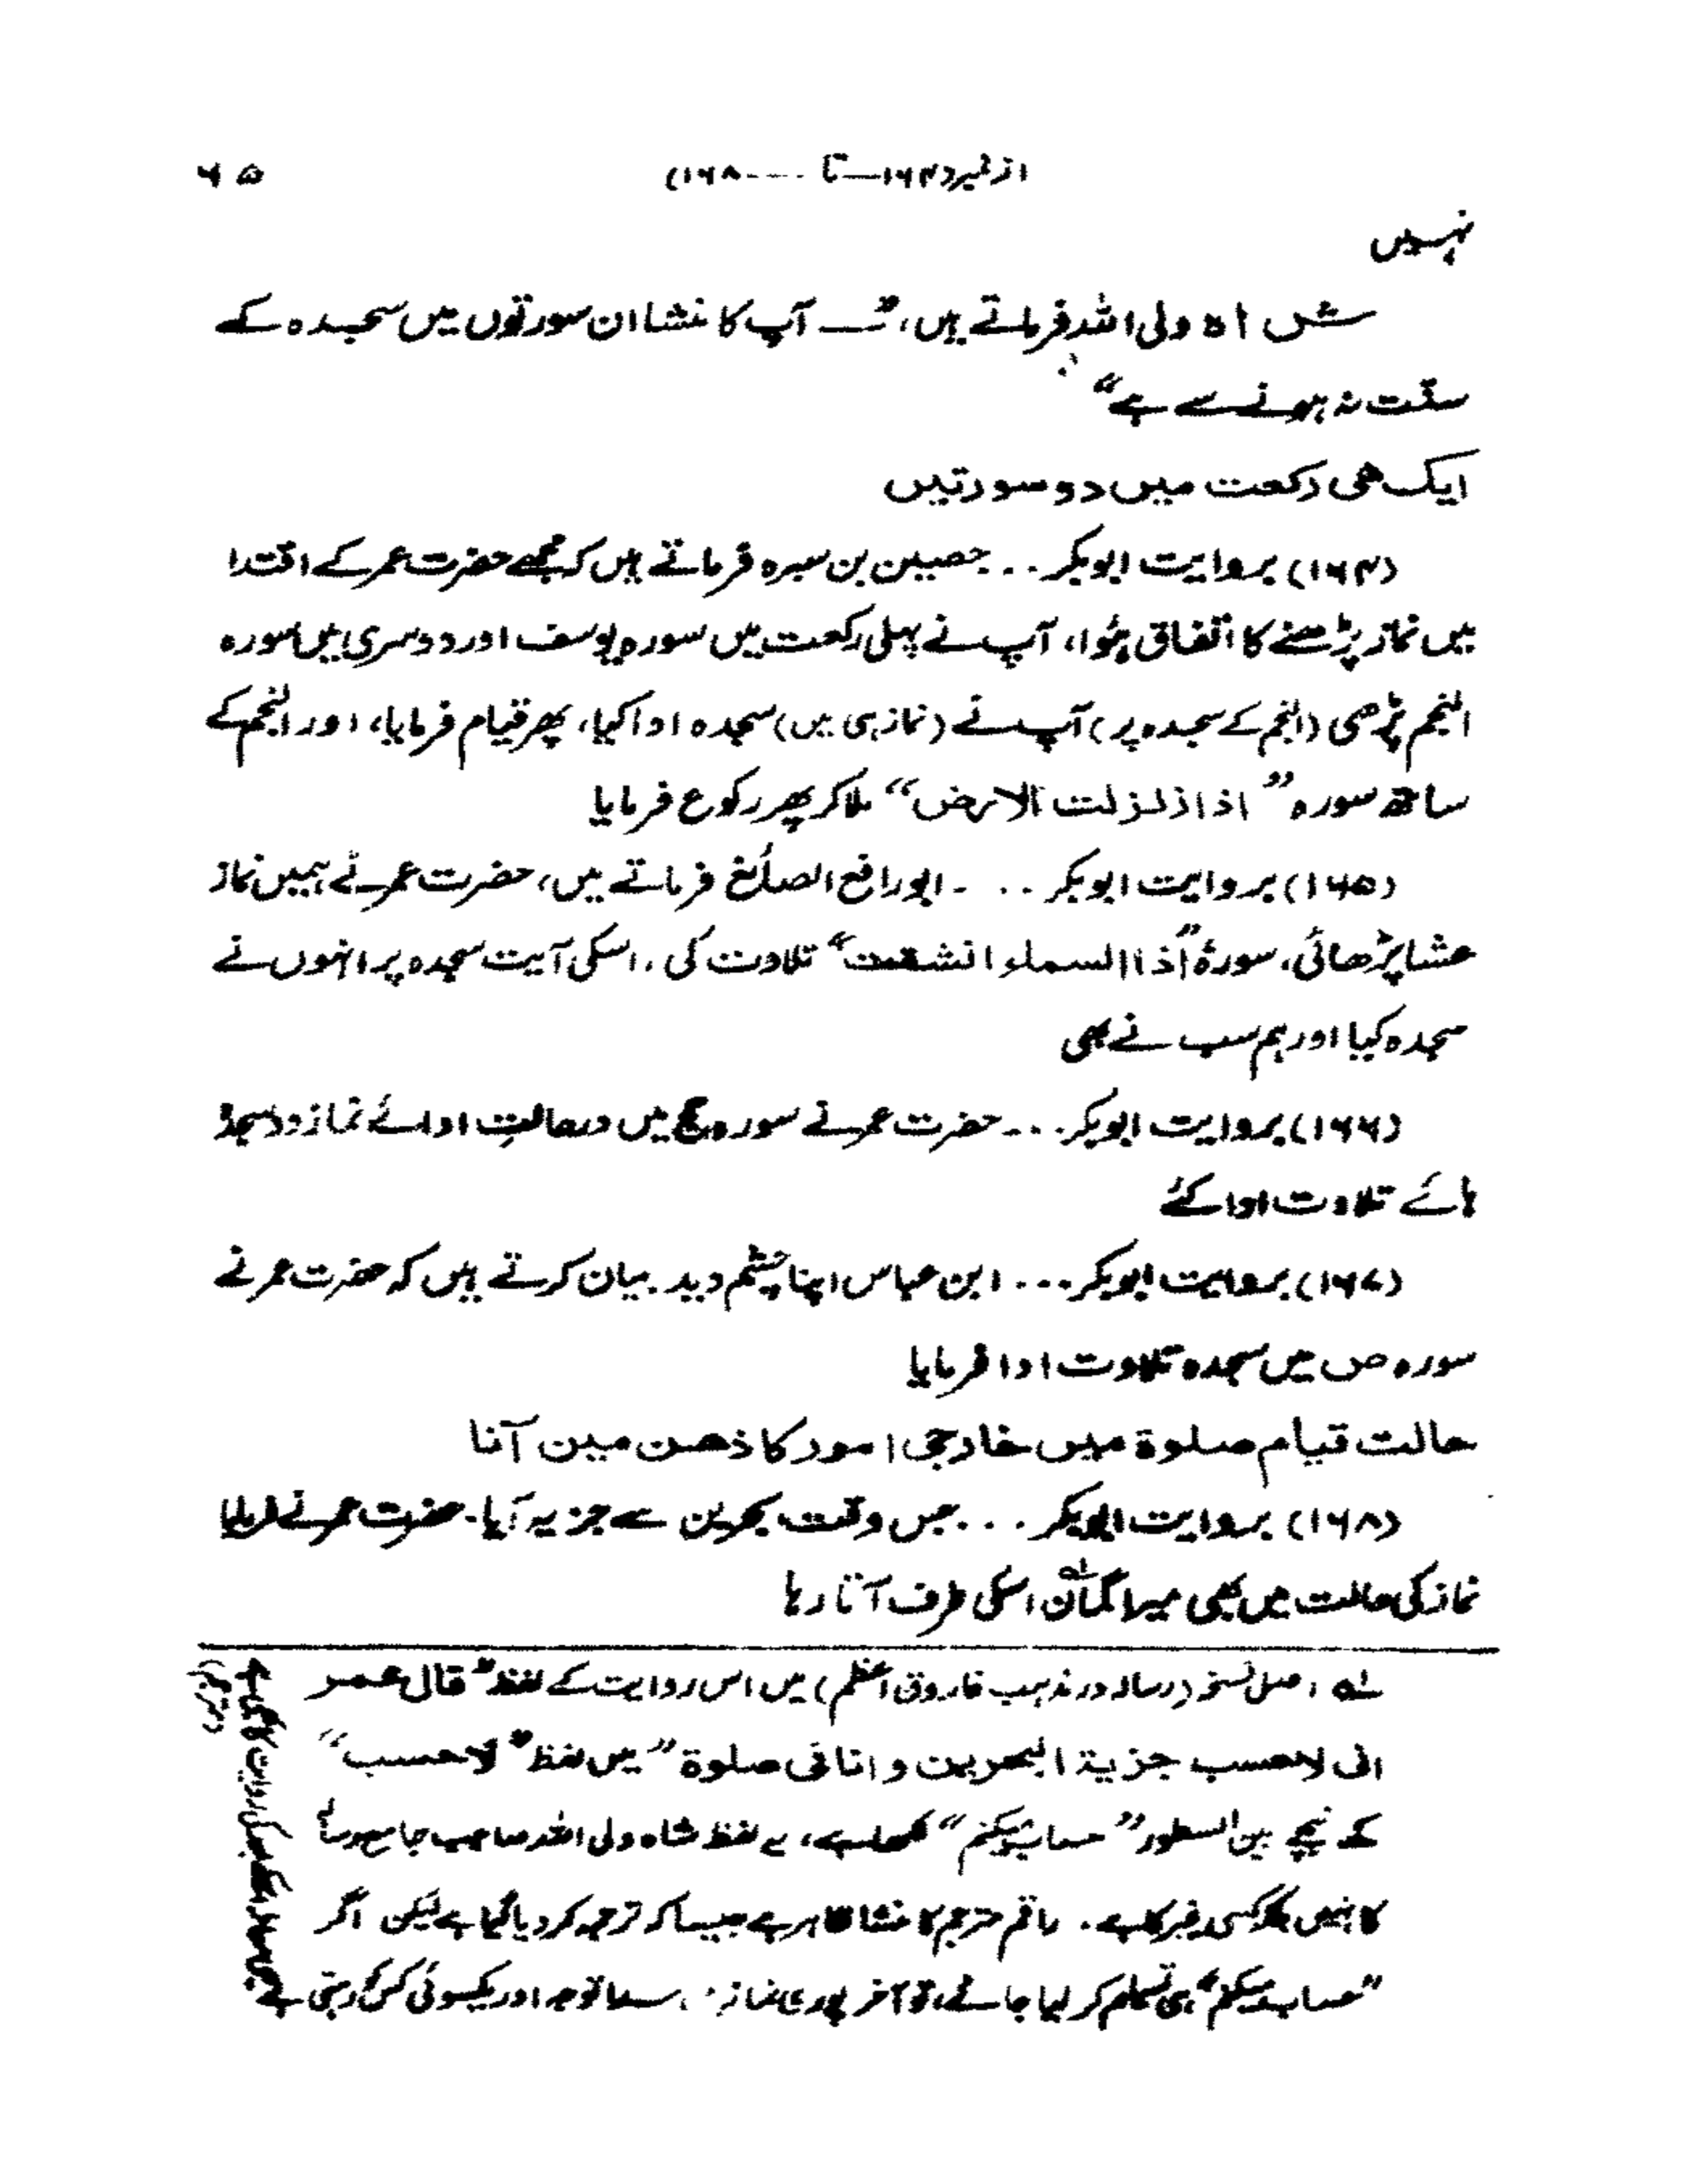 از نمبر (۱۶۴ــ تا ---- ۱۶۸)
۶۵
نہیں
شاہ ولی اللہ فرماتے ہیں، "ــ آپ کا منشا ان سورتوں میں سجدہ کے
سنّت نہ ہونے سے ہے"
ایک ھی رکعت میں دو سورتیں
(۱۶۴) بروایت ابوبکر ... حصیین بن سبرہ فرماتے ہیں کہ مجھے حضرت عمر کے اقتدا
میں نماز پڑھنے کا اتفاق ہُوا، آپ نے پہلی رکعت میں سورہ یوسف اور دوسری میں سورہ
النجم پڑھی (النجم کے سجدہ پر) آپ نے (نماز ہی میں) سجدہ ادا کیا، پھر قیام فرمایا، اور النجم کے
ساتھ سورہ "اذا زلزلت الارض" ملا کر پھر رکوع فرمایا
(۱۶۵) بروایت ابوبکر ... ابورافع الصائغ فرماتے ہیں، حضرت عمر نے ہمیں نماز
عشا پڑھائی، سورۂ "اذا السماء انشقت" تلاوت کی، اسکی آیت سجدہ پر انہوں نے
سجدہ کیا اور ہم سب نے بھی
(۱۶۶) بروایت ابوبکر ... حضرت عمر نے سورہ حج میں درحالتِ ادائے نماز دو سجدہ
ہائے تلاوت ادا کئے
(۱۶۷) بروایت ابوبکر ... ابن عباس اپنا چشم دید بیان کرتے ہیں کہ حضرت عمر نے
سورہ ص میں سجدہ تلاوت ادا فرمایا
حالت قیام صلوۃ میں خارجی امور کا ذھن مین آنا
(۱۶۸) بروایت ابوبکر ... جس وقت بحرین سے جزیہ آیا۔ حضرت عمر نے فرمایا
نماز کی حالت میں بھی میرا گمان لہ اسکی طرف آتا رہا
لہ اصل نسخہ (رسالہ در مذہب فاروق اعظم) میں اس روایت کے لفظ "قال عمر
انی لاحسب جزیۃ البحرین و انا فی صلوۃ" میں لفظ "لاحسب"
کے نیچے بین السطور "حساب میکنم" لکھا ہے، یہ لفظ شاہ ولی اللہ صاحب جامع رسالہ
کا نہیں بلکہ کسی غیر کا ہے۔ راقم مترجم کا منشا ظاہر ہے جیسا کہ ترجمہ کر دیا گیا ہے لیکن اگر
"حساب میکنم" ہی تسلیم کر لیا جائے، تو آخر پوری نماز توجہ اور یکسوئی کس کی رہتی ہے